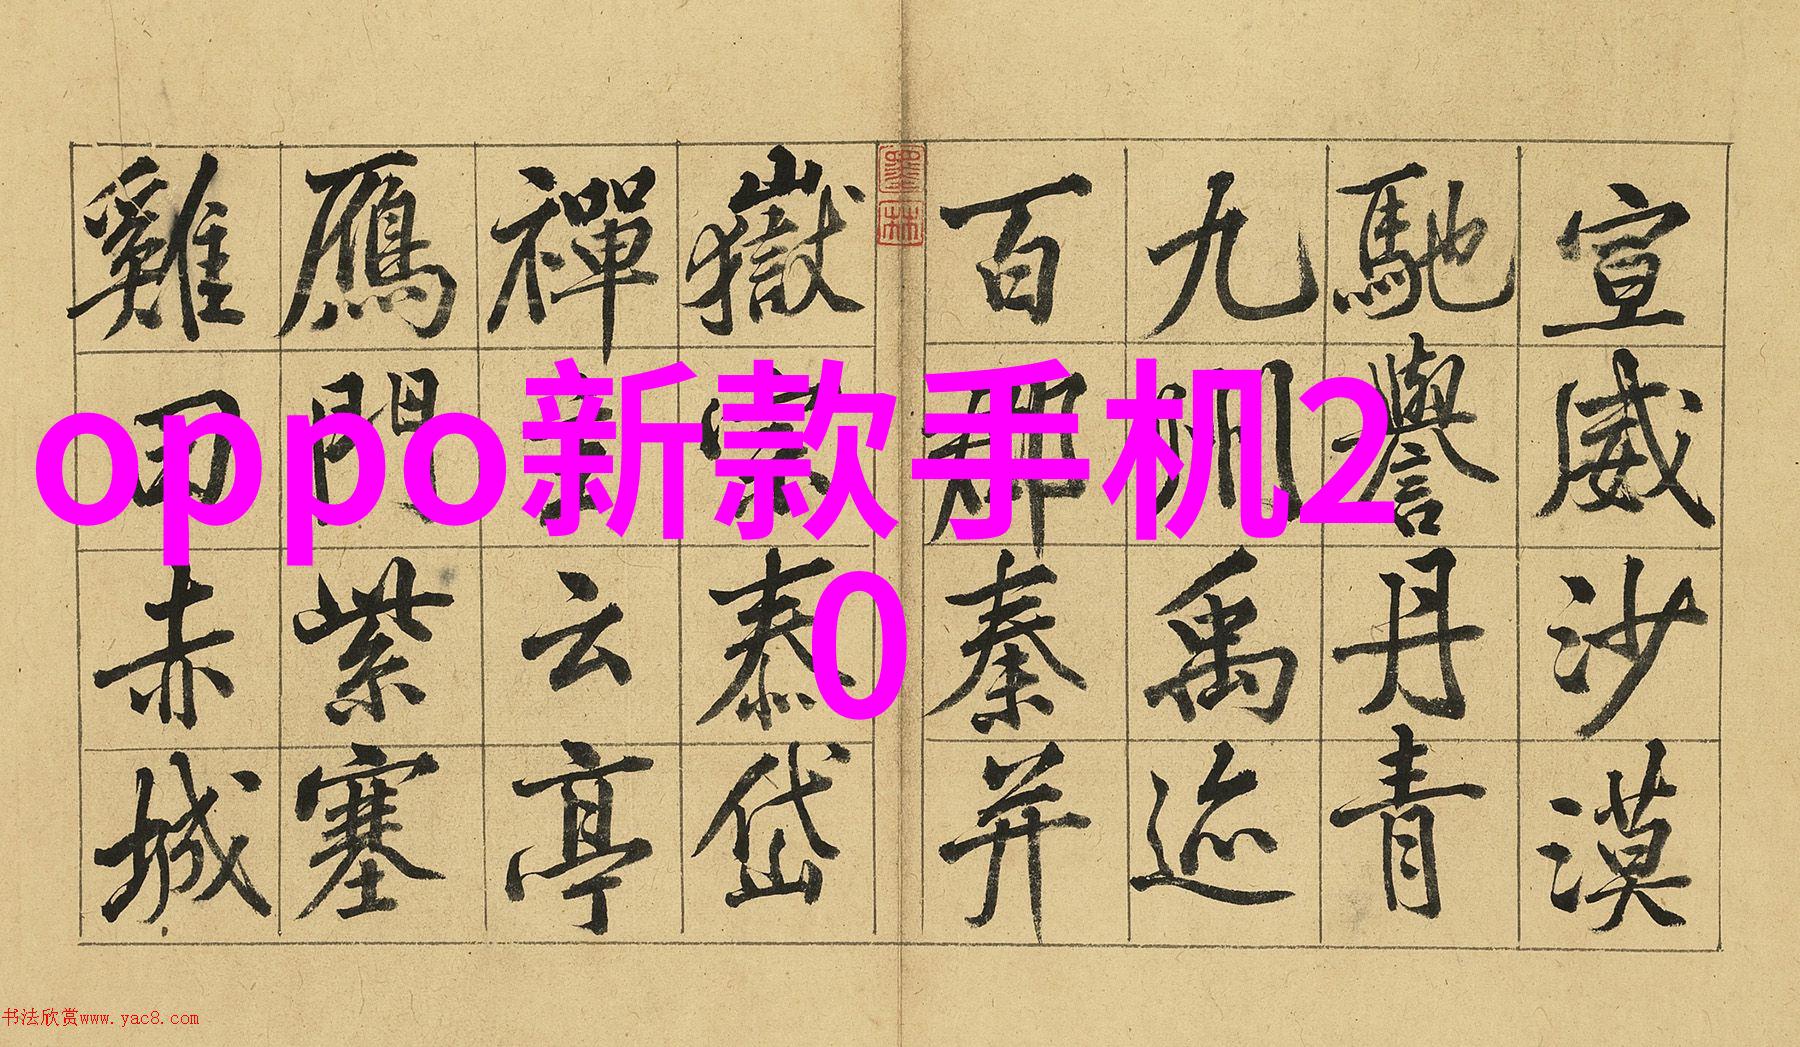 宣威沙漠
馳譽丹青
九州禹迹
百郡秦并
嶽宗泰岱
禪主云亭
鴈門紫塞
雞田赤城
墨林
oppo新款手机2
0
书法欣赏www.yac8.com